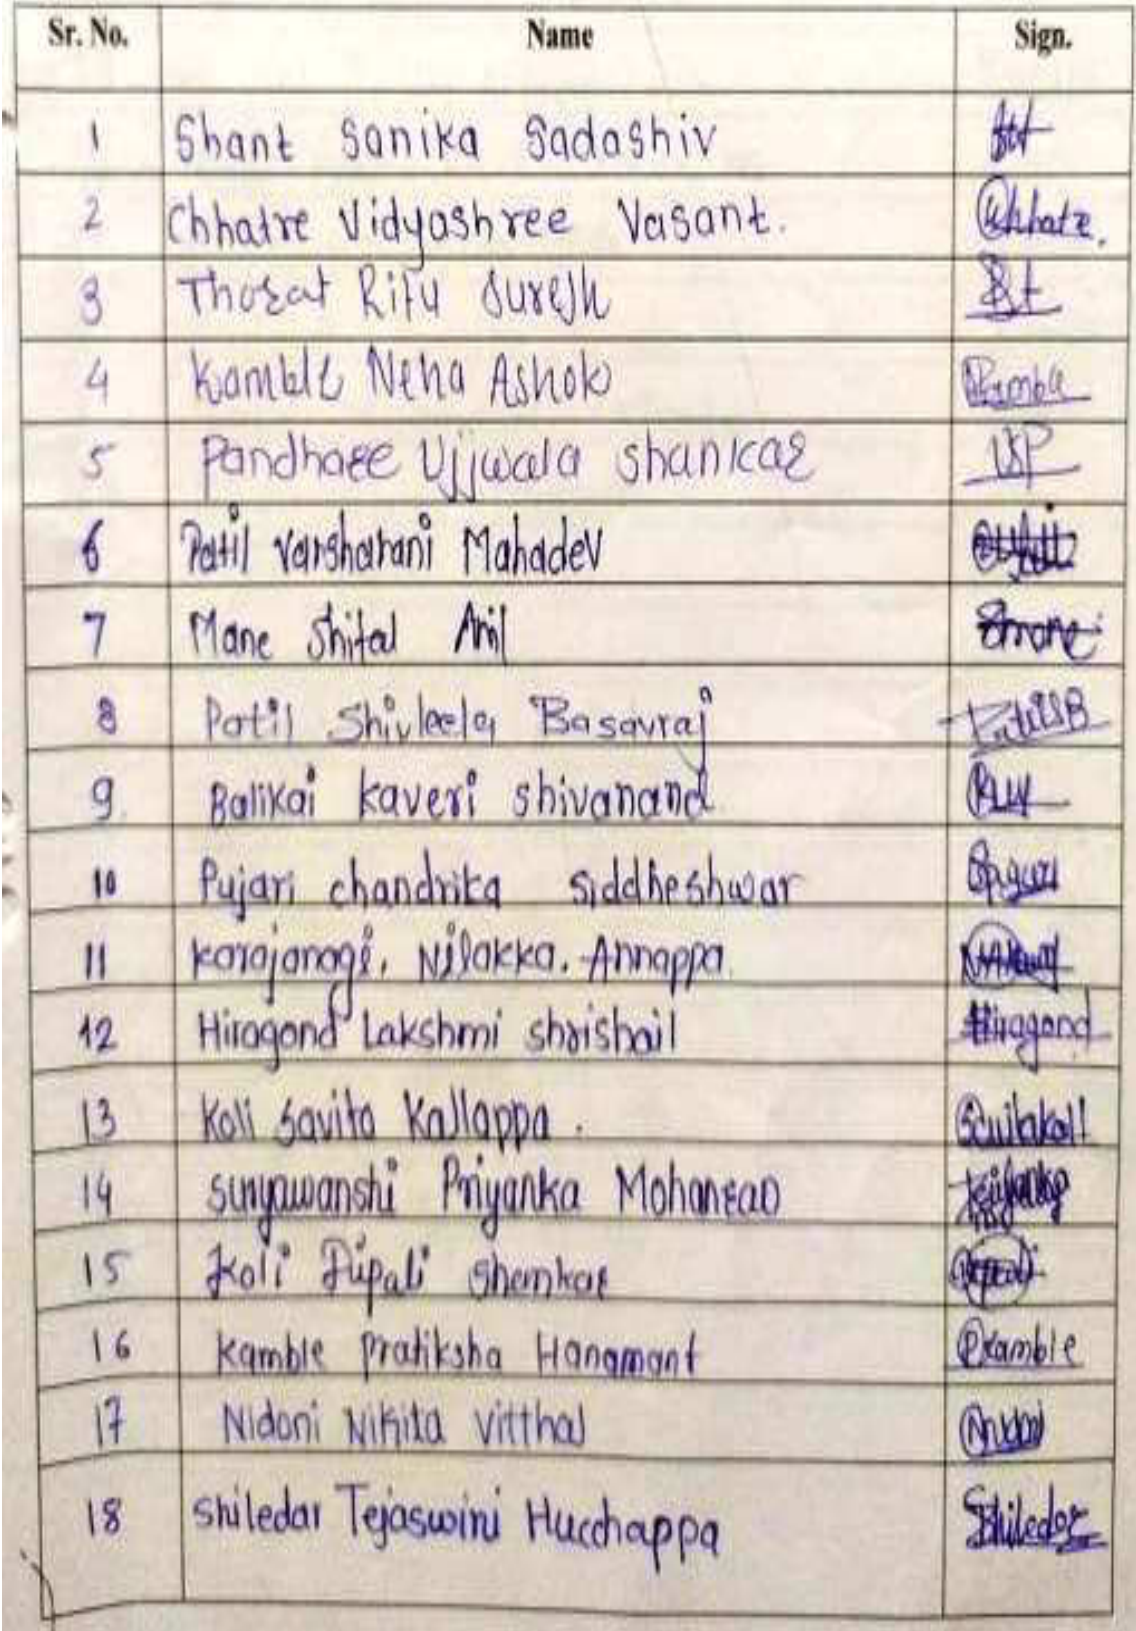 Sr. No. Name Sign.
1 Shant Sanika Sadashiv
2 Chhatre Vidyashree Vasant. Chhatre.
3 Thorat Ritu Suresh
4 Kamble Neha Ashok Kamble
5 Pandhare Ujjwala Shankar USP
6 Patil Varsharani Mahadev
7 Mane Shital Anil Smane
8 Patil Shivleela Basavraj PatilSB
9. Balikai Kaveri Shivanand
10 Pujari Chandrika Siddheshwar
11 Karajanagi. Nilakka. Annappa
12 Hiragond Lakshmi Shrishail Hiragond
13 Koli Savita Kallappa. Savitakoli
14 Suryawanshi Priyanka Mohanrao
15 Koli Dipali Shankar
16 Kamble Pratiksha Hanamant PKamble
17 Nidoni Nikita Vitthal
18 Shiledar Tejaswini Hucchappa Shiledar